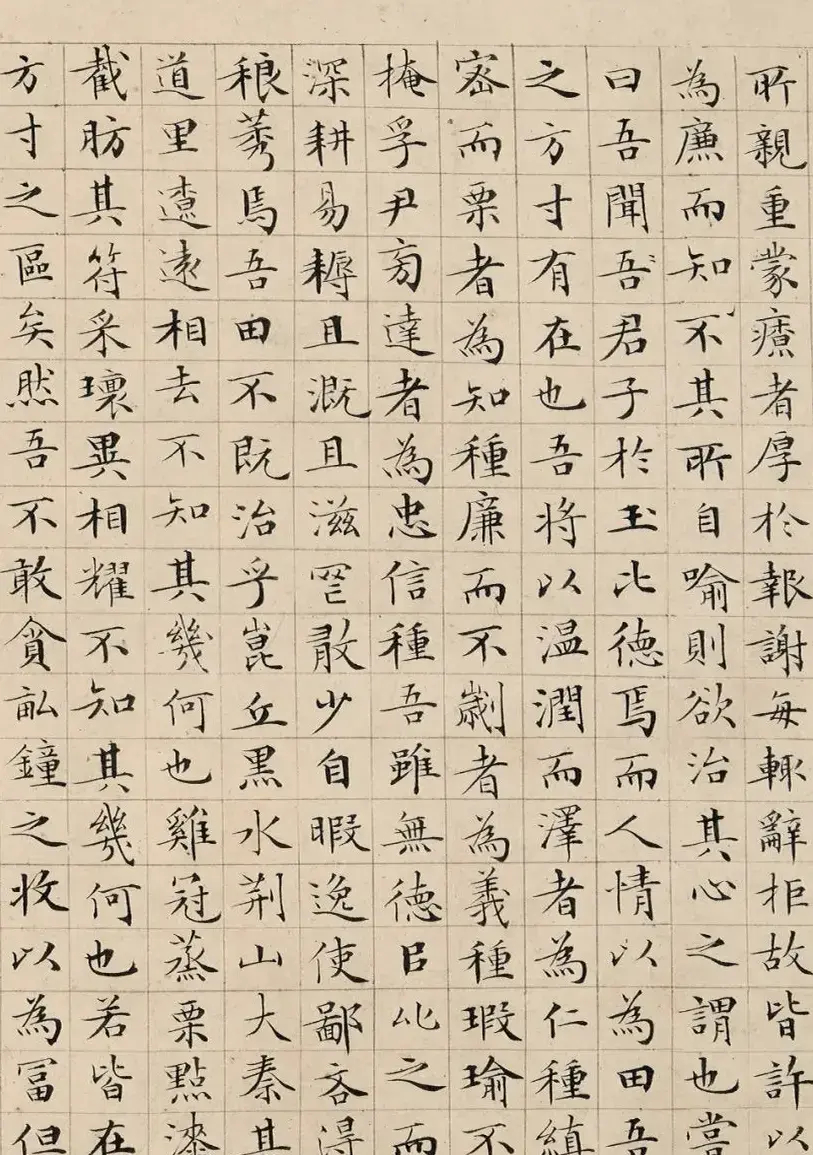 所親重蒙㾾者厚於報謝每輙辭拒故皆許以
為廉而知不其所自喻則欲治其心之謂也嘗
曰吾聞吾君子於玉比德焉而人情以為田吾
之方寸有在也吾將以温潤而澤者為仁種縝
宻而栗者為知種廉而不劌者為義種瑕瑜不
掩孚尹旁達者為忠信種吾雖無德㠯此之而
深耕易耨且溉且滋罔敢少自暇逸使鄙吝得
稂莠焉吾田不既治乎崑丘黑水荆山大秦其
道里遼遠相去不知其幾何也雞冠蒸栗點漆
截肪其符采瓌異相耀不知其幾何也若皆在
方寸之區矣然吾不敢貪畝鐘之收以為冨但